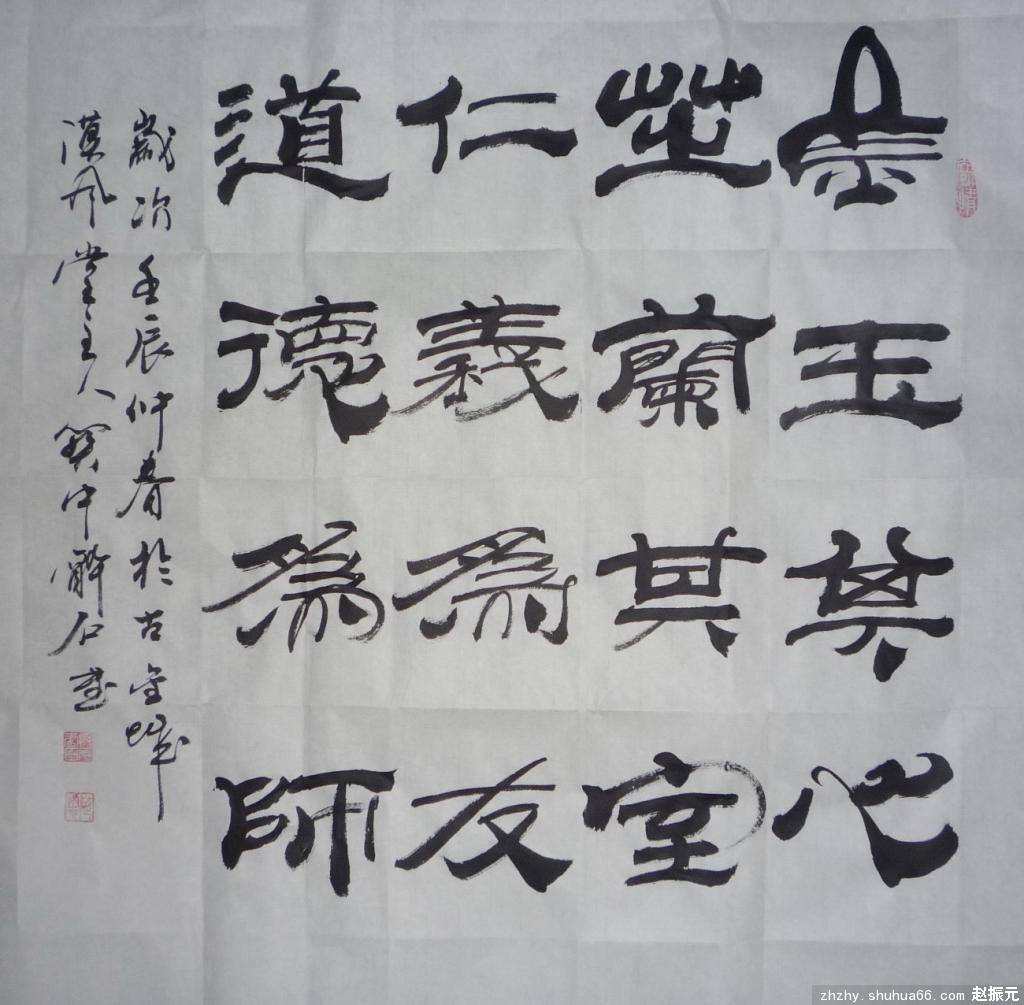 金玉其心
芝蘭其室
仁義為友
道德為師
歲次壬辰仲春於古金城
漢風堂主人關中石書
zhzhy.shuhua66.com 赵振元